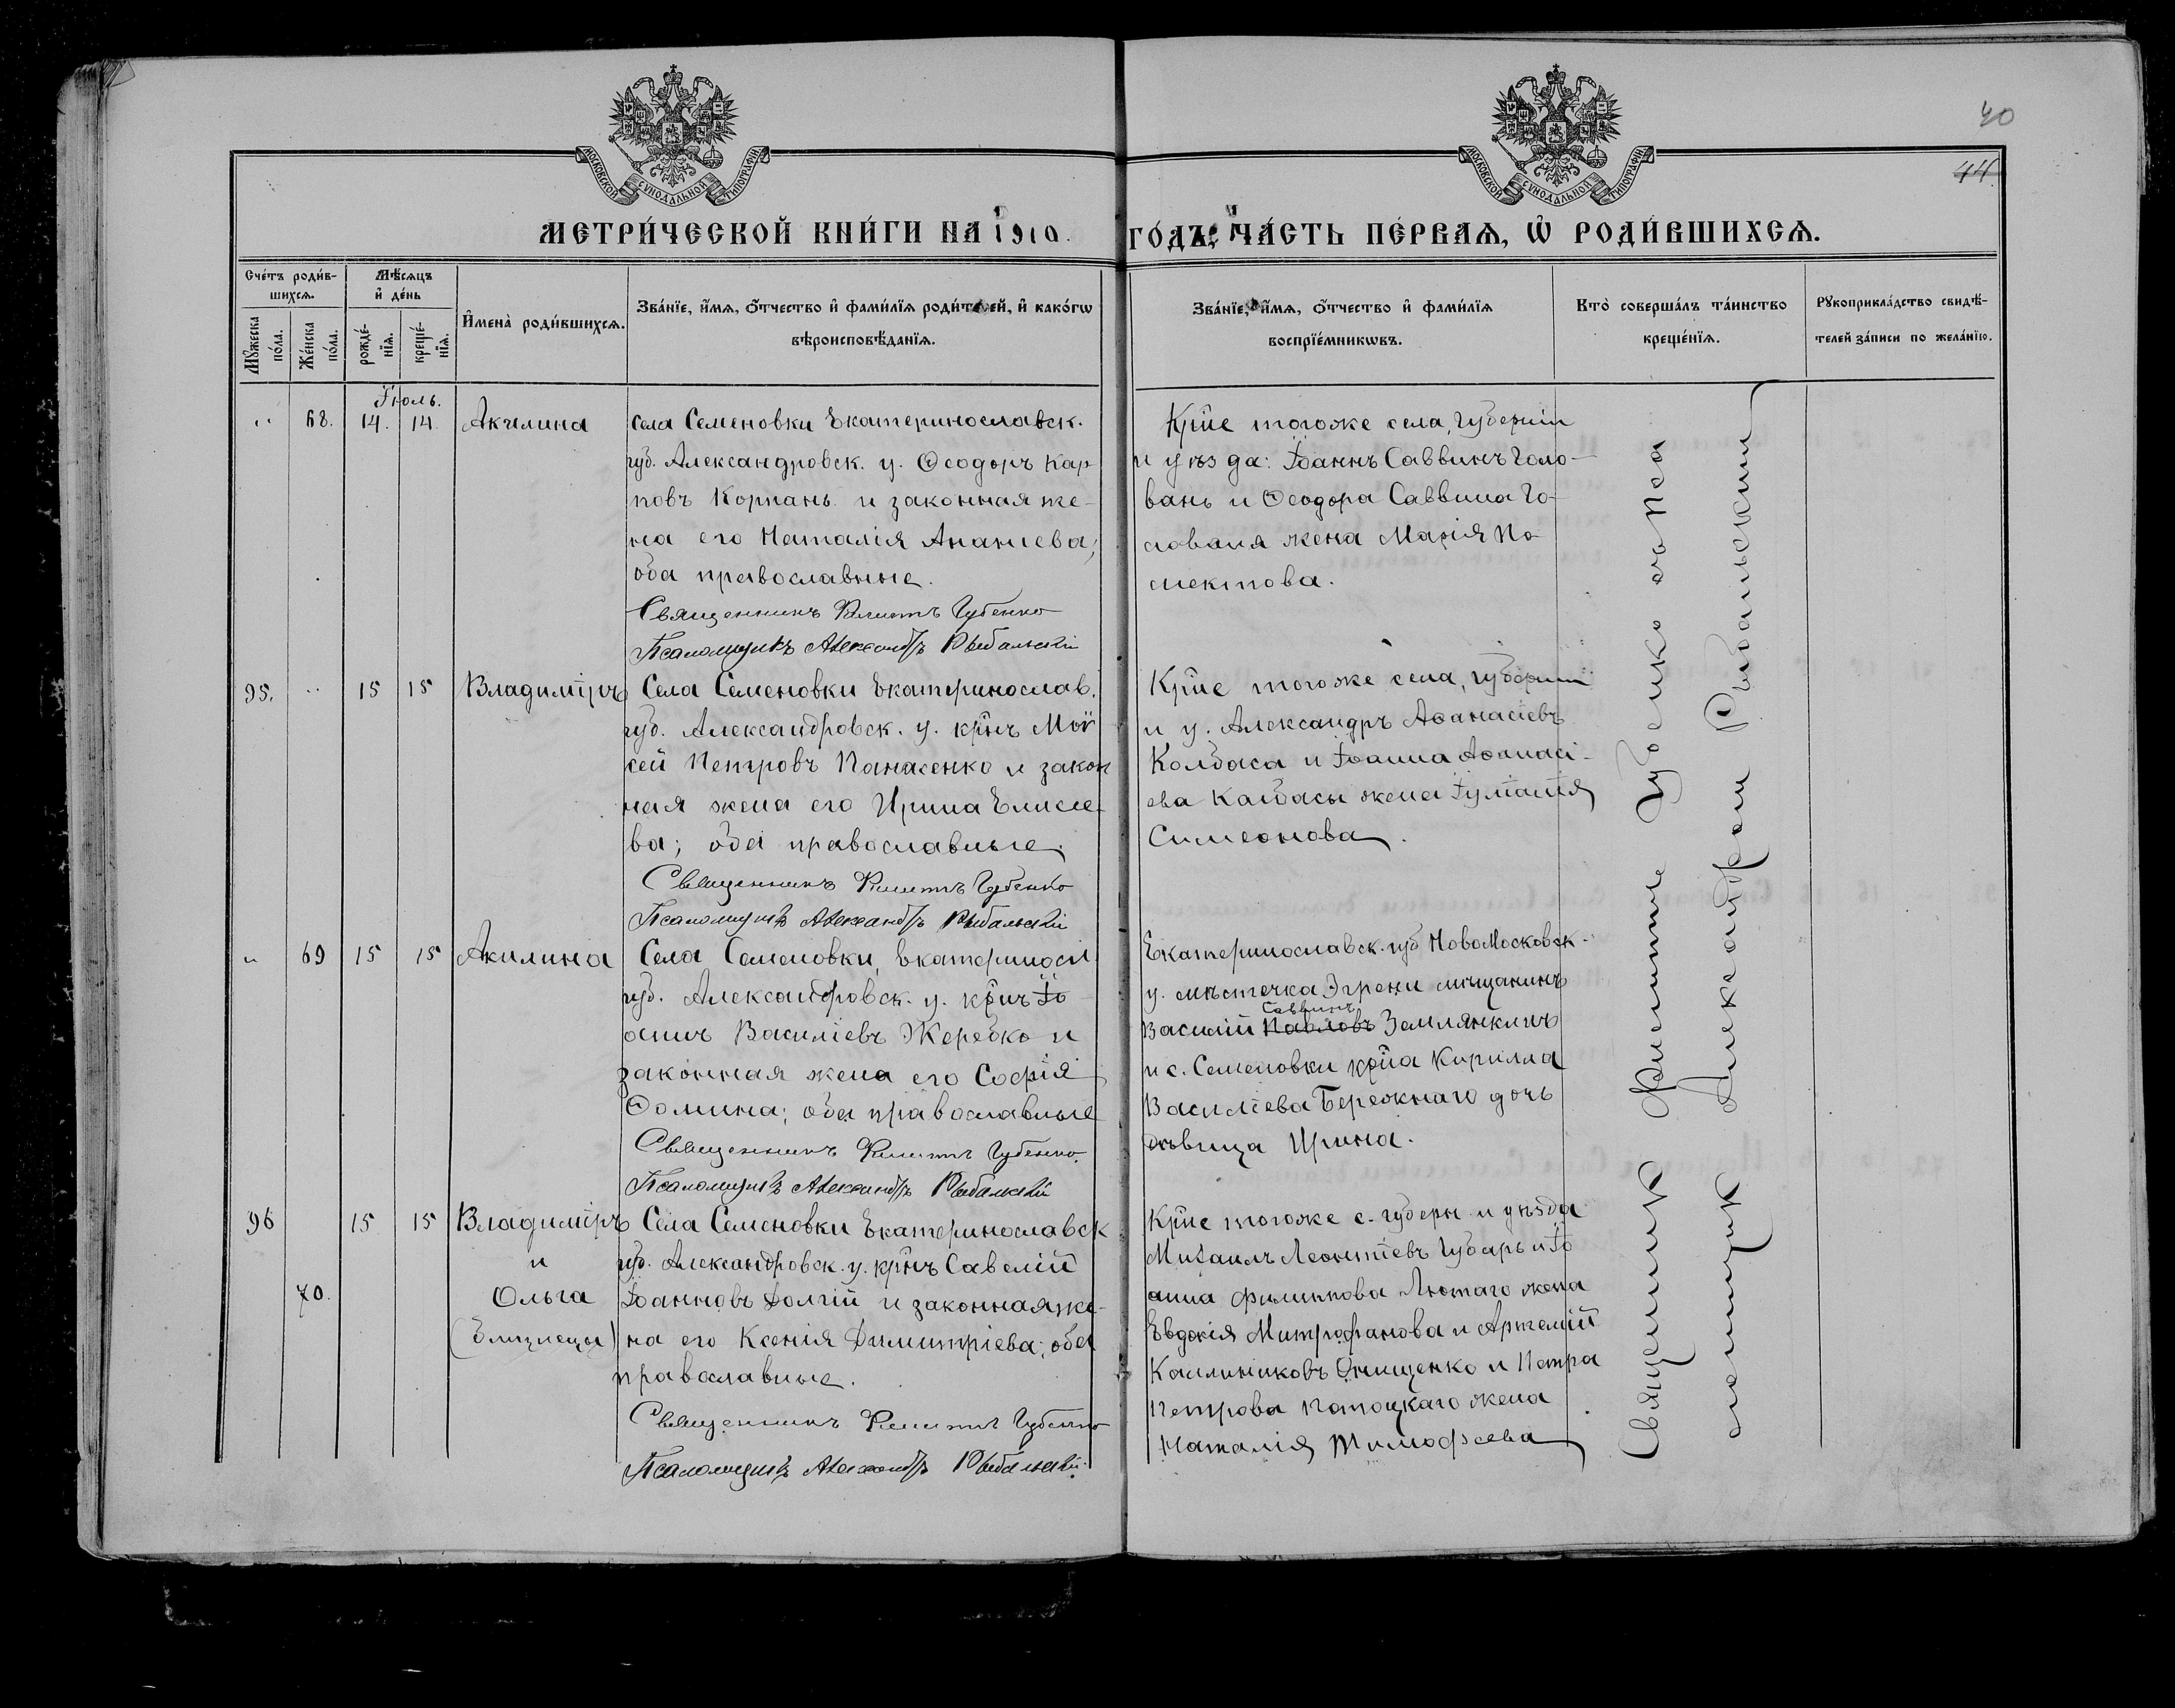 40
44.
МОСКОВСКОЙ СѴНОДАЛЬНОЙ ТИПОГРАФІИ
МОСКОВСКОЙ СѴНОДАЛЬНОЙ ТИПОГРАФІИ
МЕТРИ́ЧЕСКОЙ КНИ́ГИ НА 1910. ГО́ДЪ, ЧА́СТЬ ПЕ́РВАѦ, Ѡ҆ РОДИ́ВШИХСѦ.
Сче́тъ роди́в-
шихсѧ.
Мѣ́сѧцъ
и҆ де́нь
Мꙋ́жеска по́ла.
Же́нска по́ла.
рожде́-
нїѧ.
креще́-
нїѧ.
И҆мена̀ роди́вшихсѧ.
Зва́нїе, и҆́мѧ, ѻ҆́тчество и҆ фами́лїѧ роди́телей, и҆ како́гѡ
вѣроисповѣ́данїѧ.
Зва́нїе, и҆́мѧ, ѻ҆́тчество и҆ фами́лїѧ
воспрїе́мникѡвъ.
Кто̀ соверша́лъ та́инство
креще́нїѧ.
Рꙋкоприкла́дство свидѣ́-
телей за́писи по жела́нїю.
Іюль.
" 68. 14. 14. Акилина
Села Семеновки Екатеринославск.
губ. Александровск. у. Ѳеодоръ Кар-
повъ Корпань и законная же-
на его Наталія Ананіева,
оба православные.
Священникъ Филиппъ Губенко
Псаломщикъ Александръ Рыбальскій
Кр̃не тогоже села, губерніи
и уѣзда: Іоаннъ Саввинъ Голо-
вань и Ѳеодора Саввина Го-
лованя жена Марія По-
лектова.
95. " 15 15 Владиміръ
Села Семеновки Екатеринослав.
губ. Александровск. у. кр̃нъ Мои
сей Петровъ Панасенко и закон
ная жена его Ирина Елисе-
ва; оба православные.
Священникъ Филиппъ Губенко
Псаломщикъ Александръ Рыбальскій
Кр̃не тогоже села, губерніи
и у. Александръ Аѳанасіевъ
Колбаса и Іоанна Аѳанасі-
ева Калбасы жена
Симеонова.
" 69 15 15 Акилина
Села Семеновки, Екатериносл.
губ. Александровск. у. кр̃нъ Іо-
аннъ Василіевъ Жеребко и
законная жена его Софія
Ѳомина; оба православные
Священникъ Филиппъ Губенко.
Псаломщикъ Александръ Рыбальскій
Екатеринославск. губ НовоМосковск-
у. мѣстечка Эгрени мѣщанинъ
Саввинъ
Василій Павловъ Землянкинъ
и с. Семеновки кр̃на Кирилла
Василіева Бережнаго дочь
дѣвица Ирина.
96 15 15 Владиміръ
и
70. Ольга
(близнецы)
Села Семеновки Екатеринославск
губ. Александровск. у. кр̃нъ Савелій
Іоанновъ Долгій и законная же-
на его Ксенія Димитріева; оба
православные.
Священникъ Филиппъ Губенко
Псаломщикъ Александръ Рыбальскій.
Кр̃не тогоже с. губерн и уѣзда
Михаилъ Леонтіевъ Губарь и Іо
анна Филиппова Лютаго жена
Евдокія Митрофанова и Артемій
Каллиниковъ Онищенко и Петра
Петрова Потоцкаго жена
Наталія Тимофеева
Священникъ Филиппъ Губенко со Пса
ломщикомъ Александромъ Рыбальскимъ